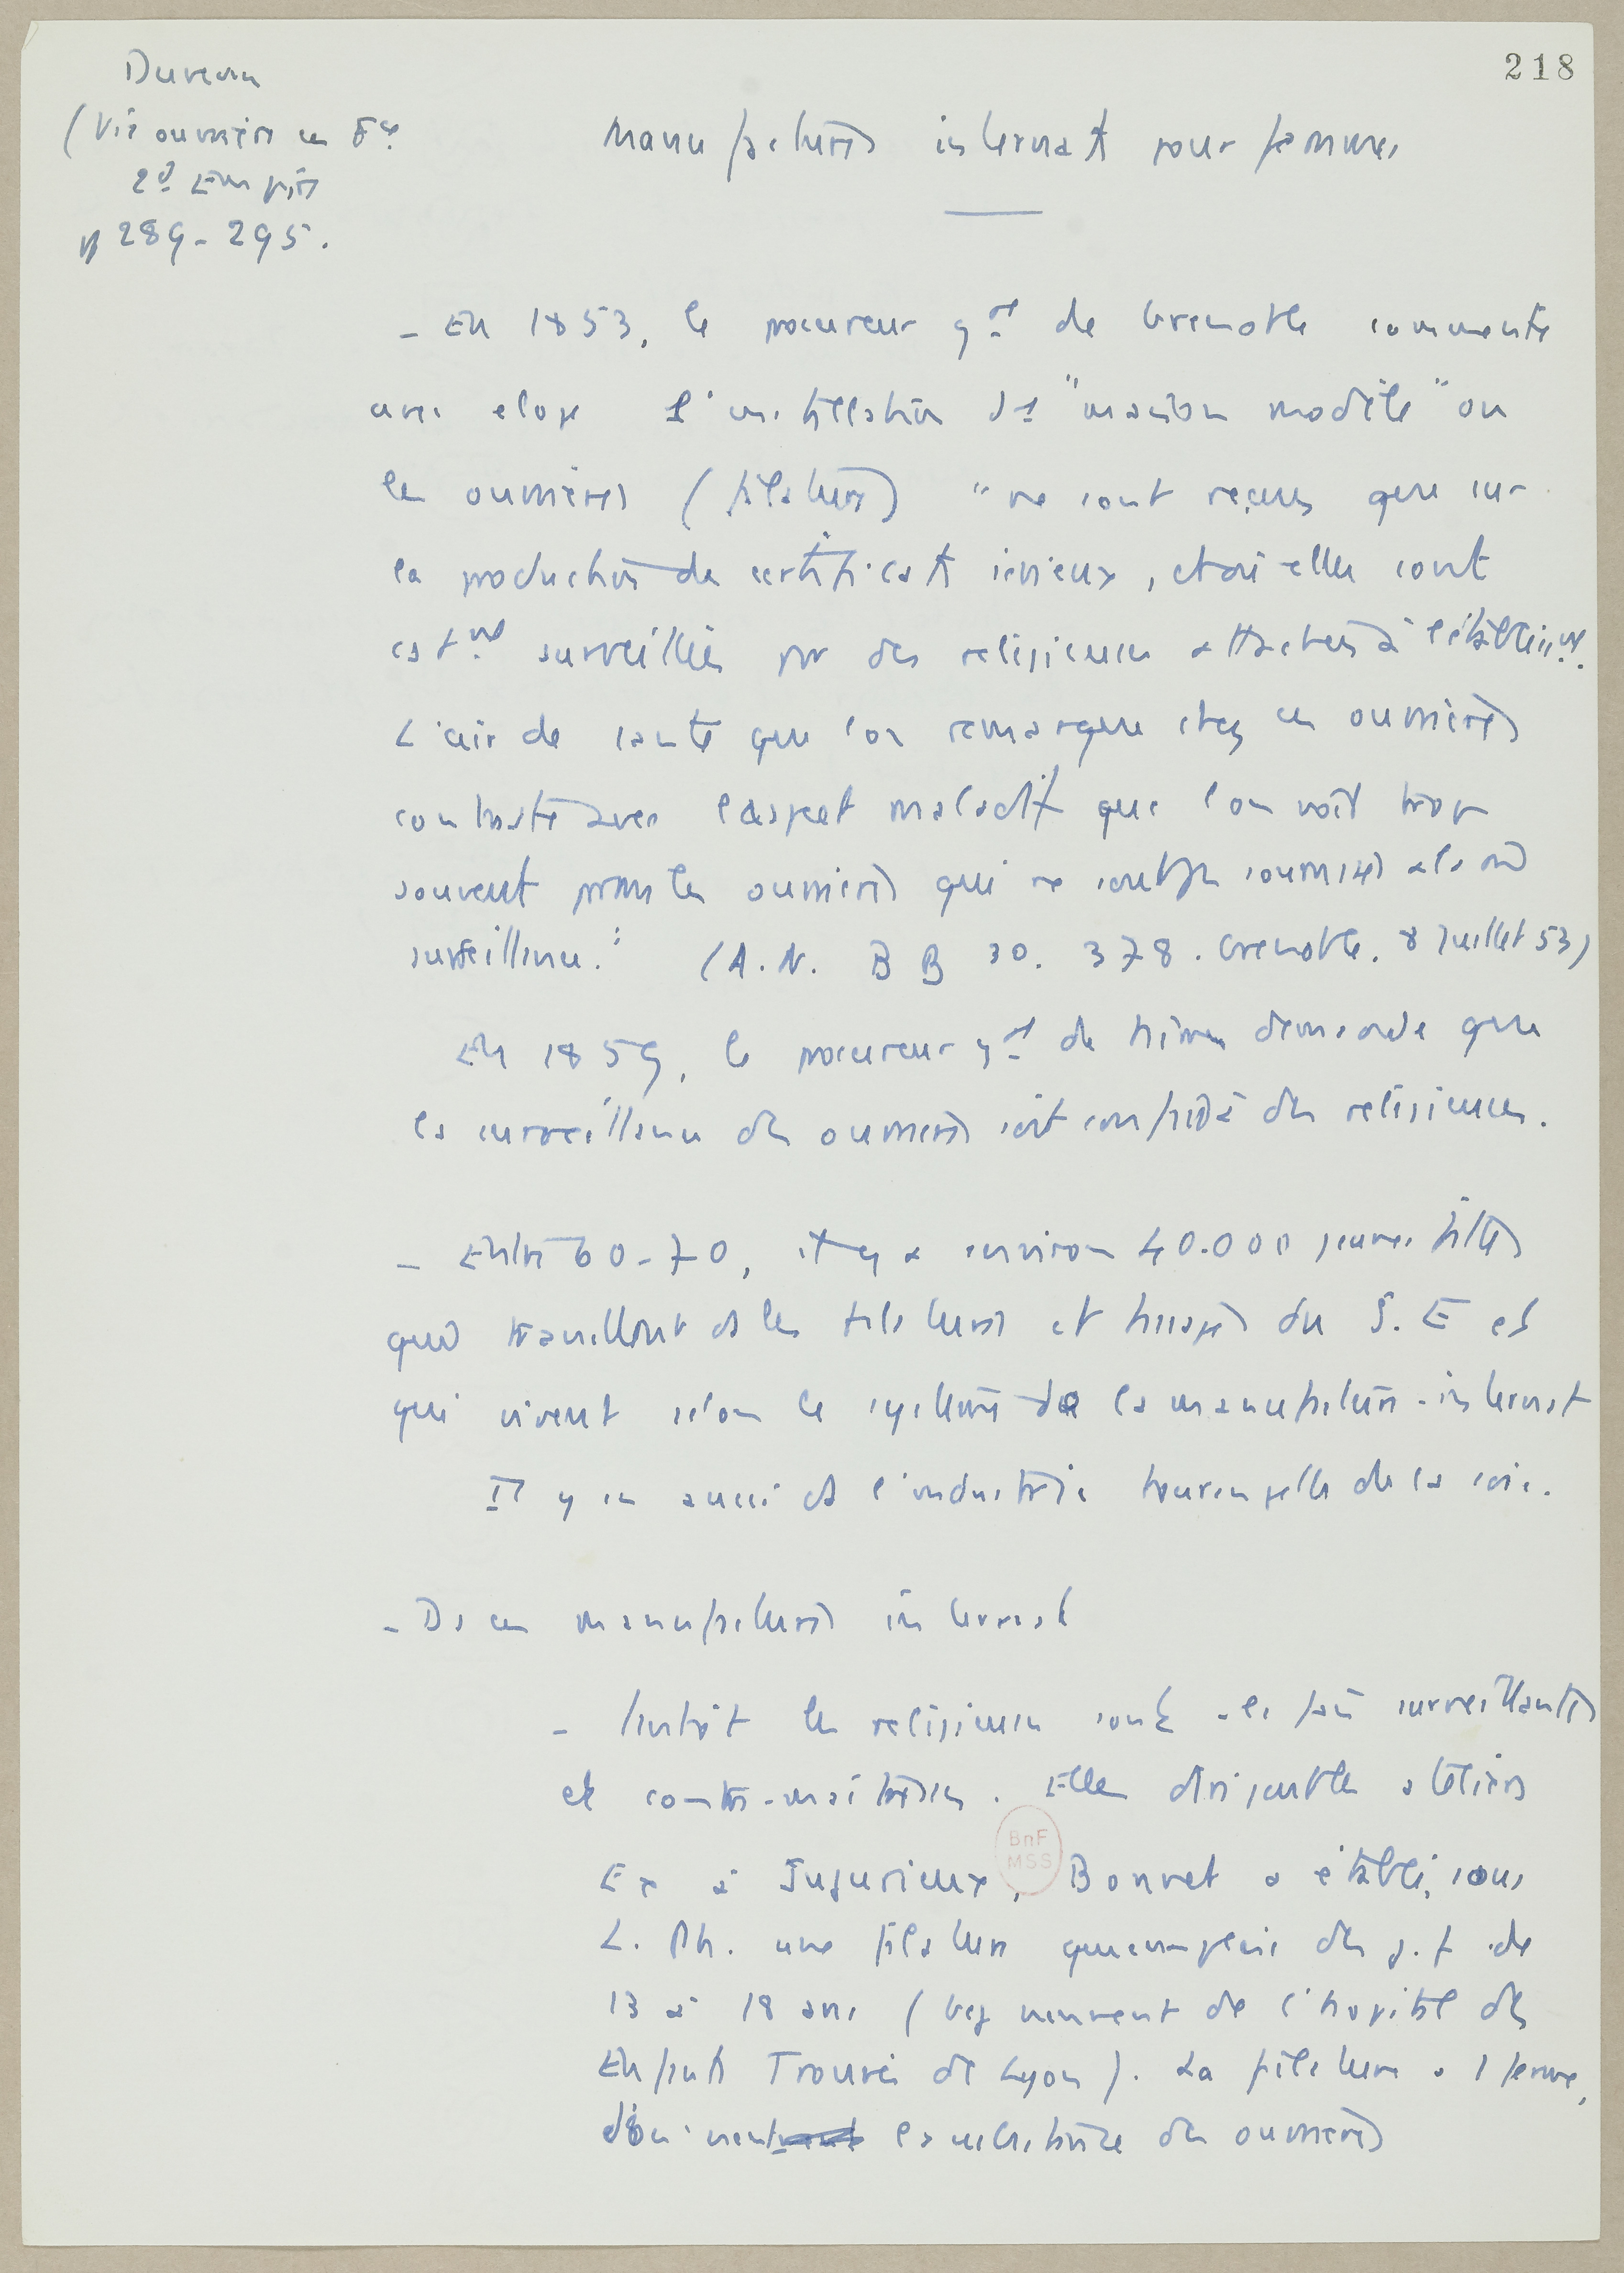 218
Duveau
(Vie ouvrière en Fce
2d Empire
pp 289-295.
Manufactures internats pour femmes
- En 1853, le procureur gal de Grenoble commente
avec eloge l'installation de "maison modèle" où
les ouvrières (filature) "ne sont reçues que sur
la production de certificats sérieux, et où elles sont
surveillées par des religieuses attachées à l'établissmt.
L'air de santé que l'on remarque chez ces ouvrières
contraste avec l'aspect maladif que l'on voit trop
souvent parmi les ouvrières qui ne sont pas soumises à la
surveillance." (A.N. BB 30. 378. Grenoble. 8 Juillet 53)
En 1859, le procureur gal de Nimes demande que
la surveillance des ouvrières soit confiée à des religieuses.
- Entre 60-70, il y a environ 40.000 jeunes filles
qui travaillent ds les filatures et tissages du S.E et
qui vivent selon le système de la manufacture-internat
Il y en aussi ds l'industrie tourangelle de la soie.
- Ds ces manufactures internat
- tantôt les religieuses sont à la fois surveillantes
et contre-maîtresses. Elles dirigent les ateliers
Ex à Jujurieux, Bonnet a établi, sous
L. Ph. une filature qui emploie des j.f de
13 à 18 ans (bcp viennent de l'hopital des
Enfants Trouvés de Lyon). La filature a 1 ferme,
d'où vient la nourriture des ouvrières
BnF
MSS